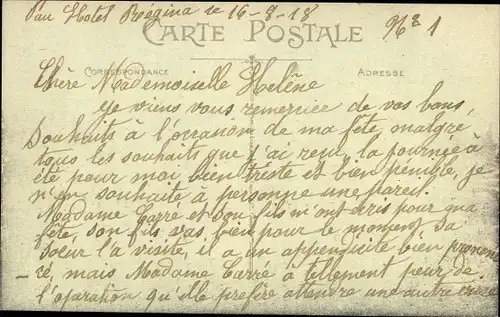 Pau Hotel Régina le 16-8-18
No 1
CARTE POSTALE
CORRESPONDANCE
ADRESSE
Chère Mademoiselle Helène
Je viens vous remercier de vos bons
Souhaits à l'occasion de ma fête, malgré
tous les souhaits que j'ai reçu, la journée à
été pour moi bien triste et bien pénible, je
n'en souhaite à personne une pareil.
Madame Carré et son fils m'ont écris pour ma
fête, son fils vas bien pour le moment, sa
soeur l'a visité, il a un appendicite bien prononc
ré, mais Madame Carré à tellement peur de
l'opération qu'elle prefère attendre une autre crise